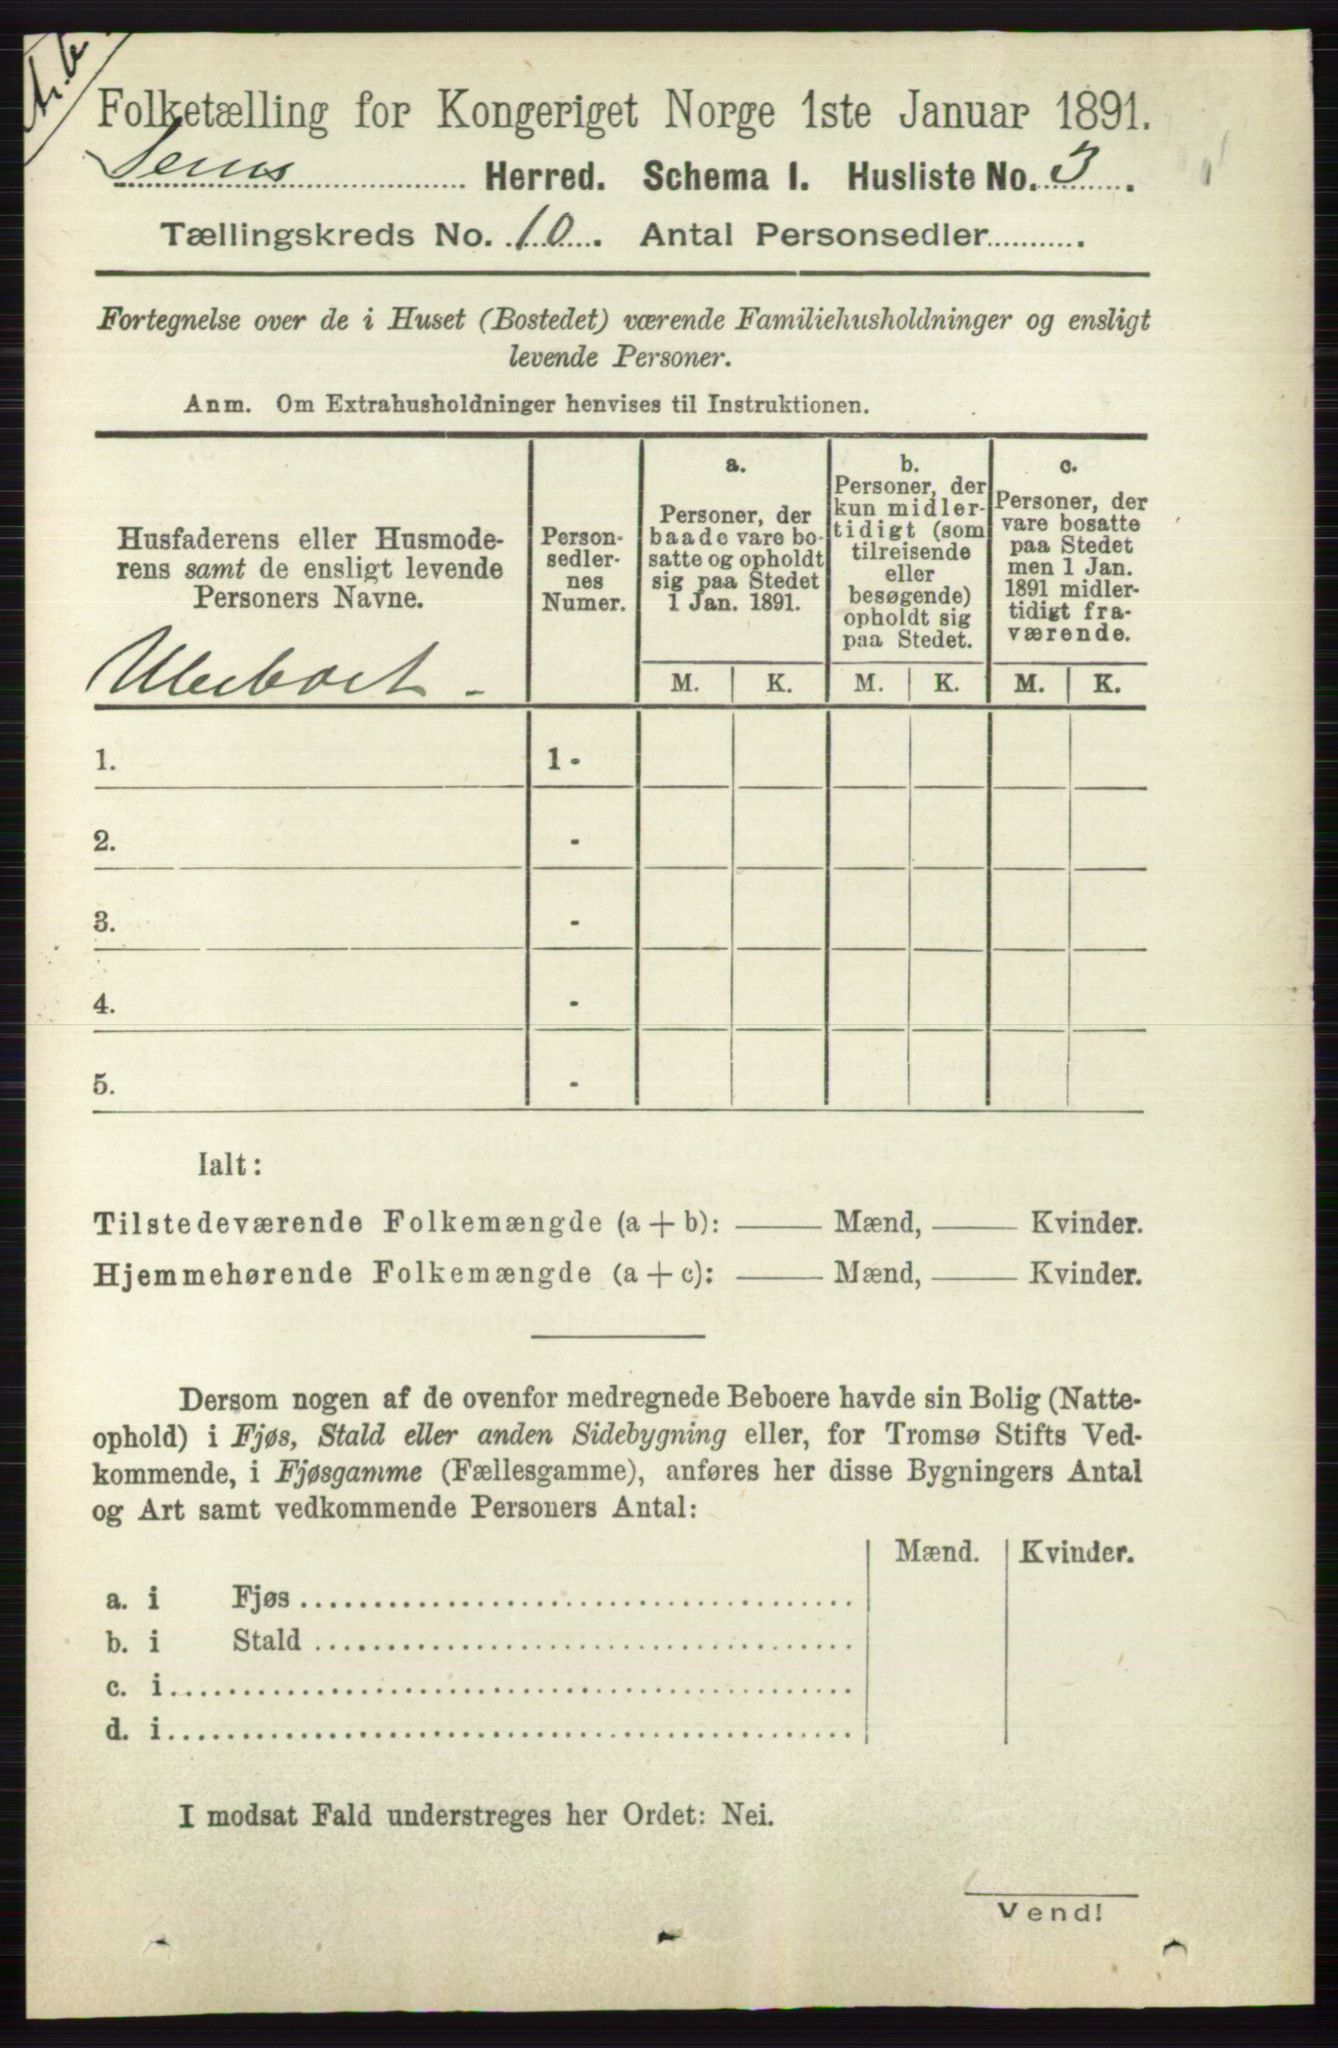 Folketælling for Kongeriget Norge 1ste Januar 1891.
Sems Herred. Schema 1. Husliste No. 3.
Tællingskreds No. 10. Antal Personsedler...........
Fortegnelse over de i Huset (Bostedet) værende Familiehusholdninger og ensligt
levende Personer.
Anm. Om Extrahusholdninger henvises til Instruktionen.
Husfaderens eller Husmode-
rens samt de ensligt levende
Personers Navne.
Person-
sedler-
nes
Numer.
a.
Personer, der
baade vare bo-
satte og opholdt
sig paa Stedet
1 Jan. 1891.
b.
Personer, der
kun midler-
tidigt (som
tilreisende
eller
besøgende)
opholdt sig
paa Stedet.
c.
Personer, der
vare bosatte
paa Stedet
men 1 Jan.
1891 midler-
tidigt fra-
værende.
M. K. M. K. M. K.
Ubeboet -
1. 1 -
2. -
3. -
4. -
5. -
Ialt:
Tilstedeværende Folkemængde (a + b): —— Mænd, —— Kvinder.
Hjemmehørende Folkemængde (a + c): —— Mænd, —— Kvinder.
Dersom nogen af de ovenfor medregnede Beboere havde sin Bolig (Natte-
ophold) i Fjøs, Stald eller anden Sidebygning eller, for Tromsø Stifts Ved-
kommende, i Fjøsgamme (Fællesgamme), anføres her disse Bygningers Antal
og Art samt vedkommende Personers Antal:
Mænd. Kvinder.
a. i Fjøs
b. i Stald
c. i
d. i
I modsat Fald understreges her Ordet: Nei.
Vend!